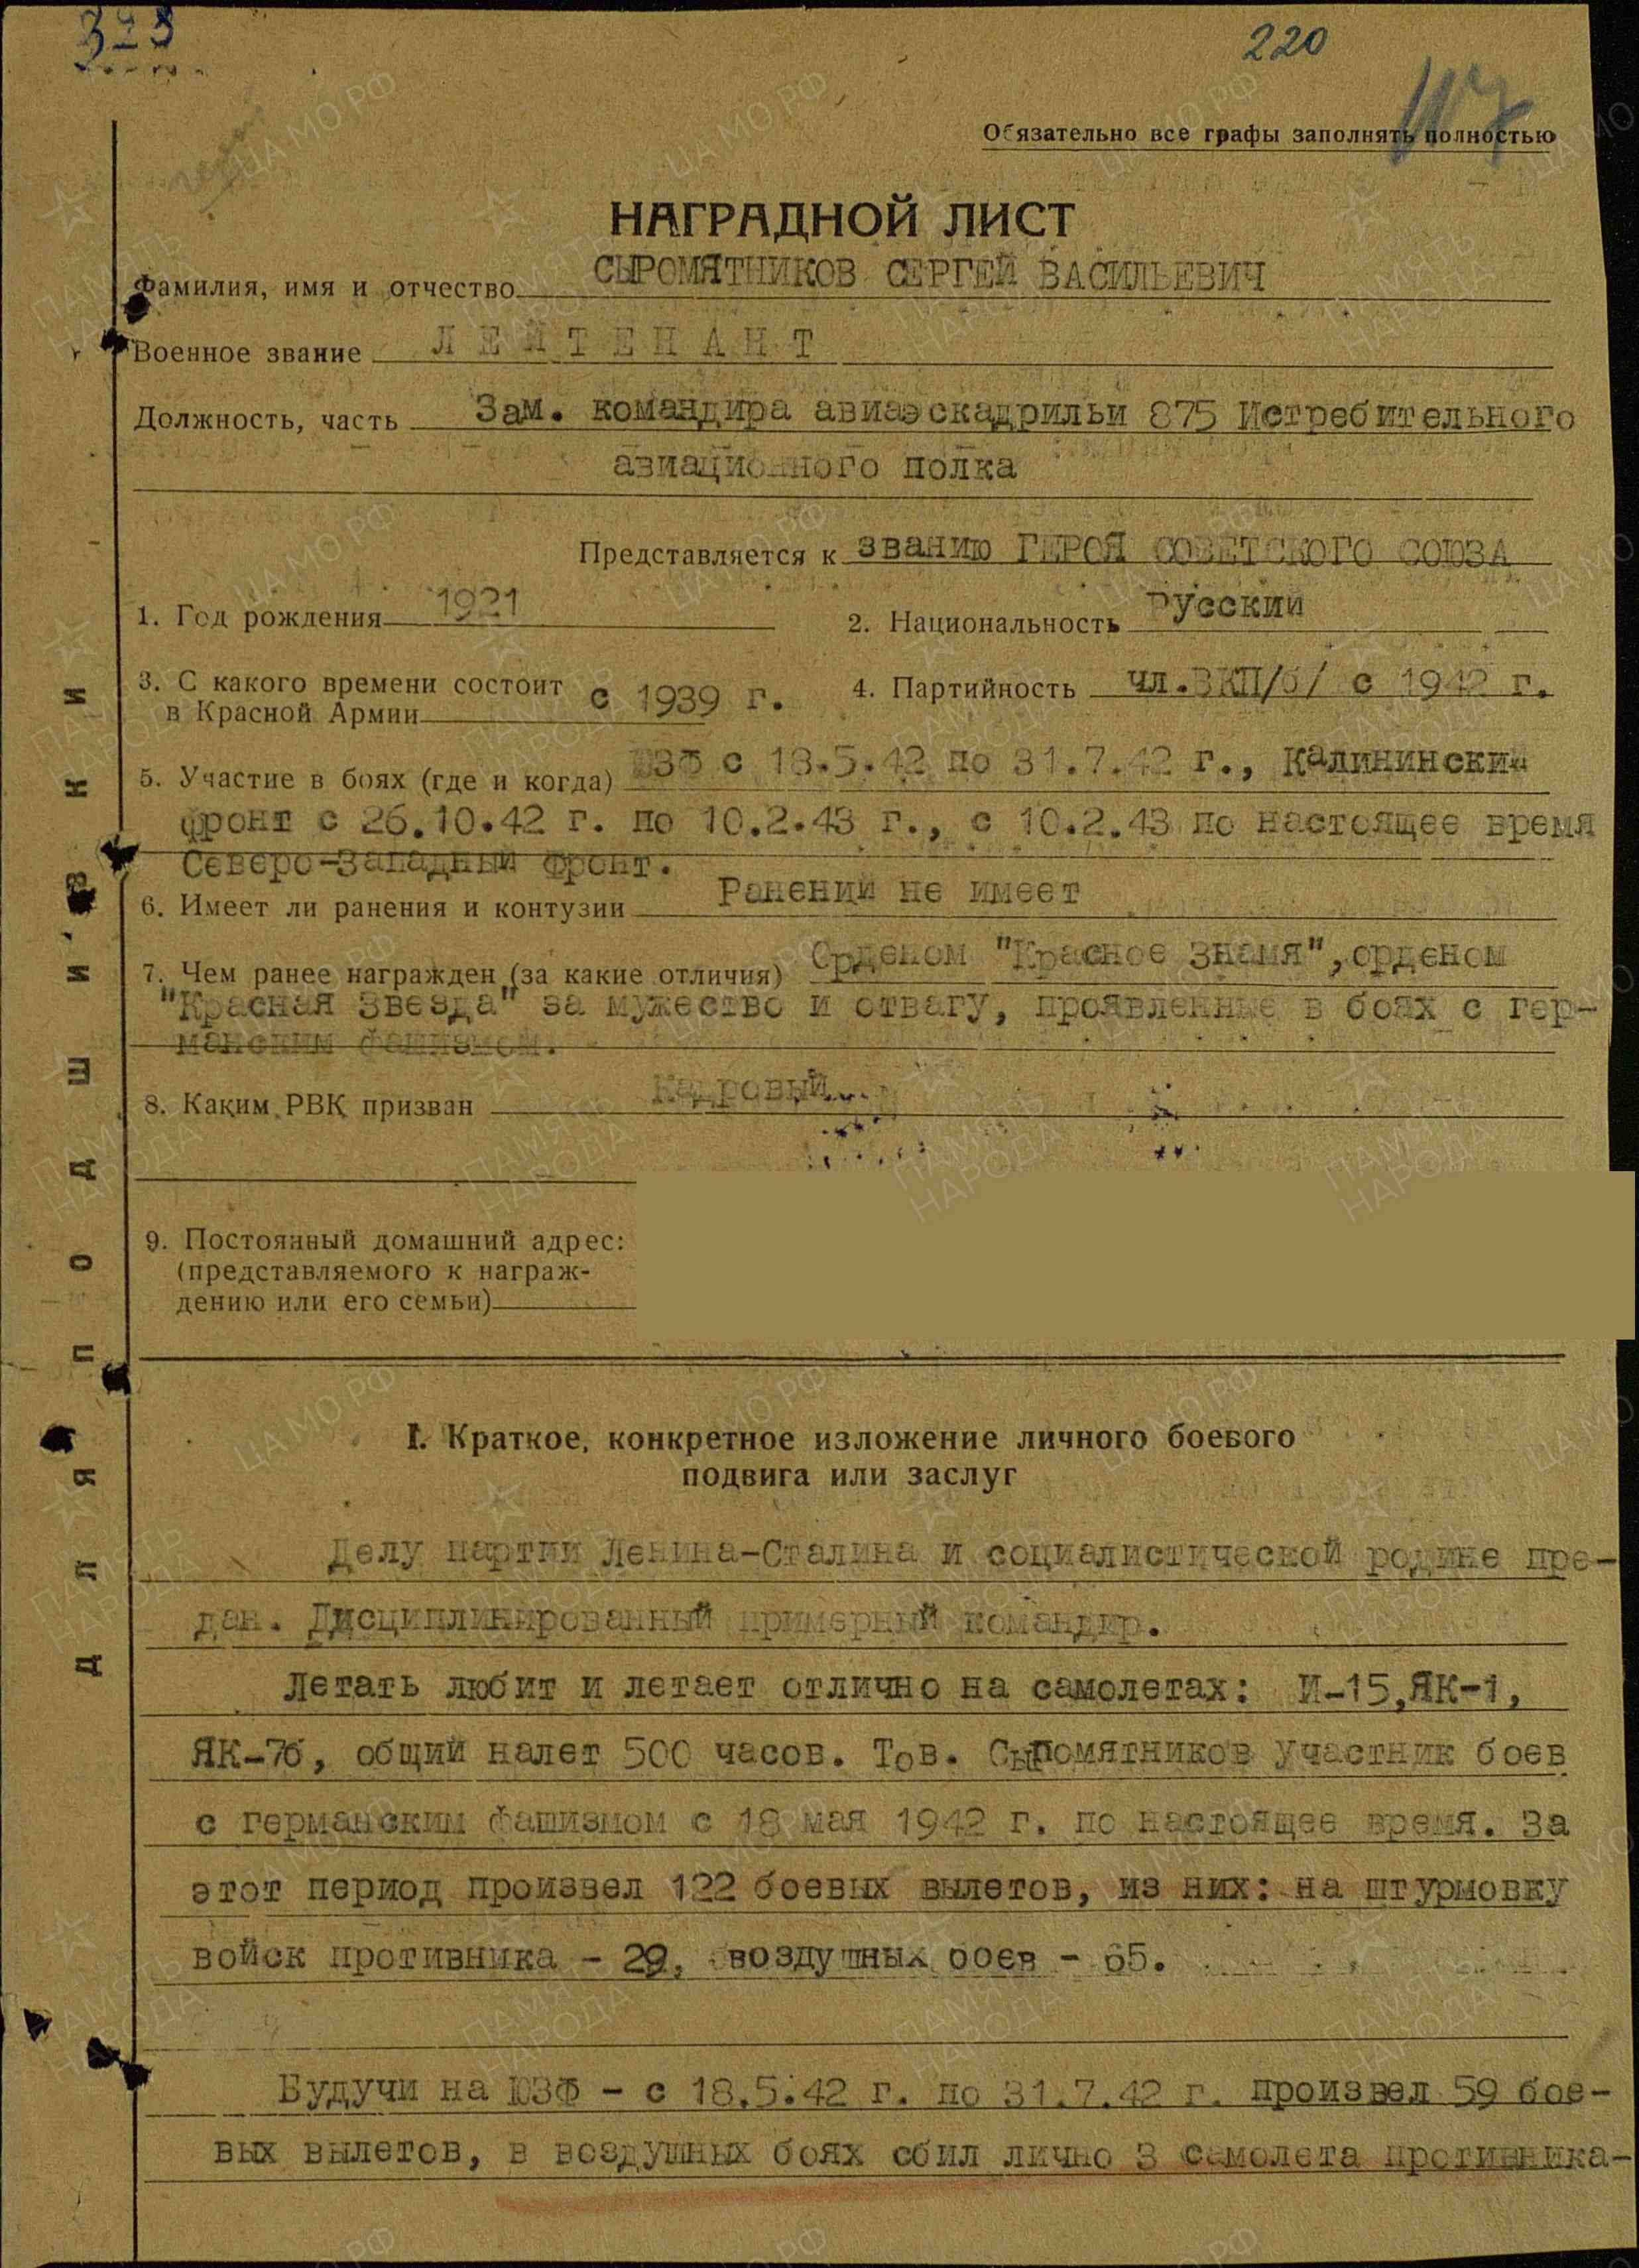 323
220
117
Обязательно все графы заполнять полностью
НАГРАДНОЙ ЛИСТ
Фамилия, имя и отчество СЫРОМЯТНИКОВ СЕРГЕЙ ВАСИЛЬЕВИЧ
Военное звание ЛЕЙТЕНАНТ
Должность, часть Зам. командира авиаэскадрильи 875 Истребительного
авиационного полка
Представляется к званию ГЕРОЯ СОВЕТСКОГО СОЮЗА
1. Год рождения 1921 2. Национальность Русский
3. С какого времени состоит в Красной Армии с 1939 г. 4. Партийность чл.ВКП/б/ с 1942 г.
5. Участие в боях (где и когда) ЮЗФ с 18.5.42 по 31.7.42 г., Калининский
фронт с 26.10.42 г. по 10.2.43 г., с 10.2.43 по настоящее время
Северо-Западный фронт.
6. Имеет ли ранения и контузии Ранений не имеет
7. Чем ранее награжден (за какие отличия) Орденом "Красное Знамя", орденом
"Красная Звезда" за мужество и отвагу, проявленные в боях с гер-
манским фашизмом.
8. Каким РВК призван Кадровый
9. Постоянный домашний адрес:
(представляемого к награж-
дению или его семьи)
ДЛЯ ПОДШИВКИ
I. Краткое, конкретное изложение личного боевого
подвига или заслуг
Делу партии Ленина-Сталина и социалистической родине пре-
дан. Дисциплинированный примерный командир.
Летать любит и летает отлично на самолетах: И-15,ЯК-1,
ЯК-7б, общий налет 500 часов. Тов. Сыромятников участник боев
с германским фашизмом с 18 мая 1942 г. по настоящее время. За
этот период произвел 122 боевых вылетов, из них: на штурмовку
войск противника - 29, воздушных боев - 65.
Будучи на ЮЗФ - с 18.5.42 г. по 31.7.42 г. произвел 59 бое-
вых вылетов, в воздушных боях сбил лично 3 самолета противника-